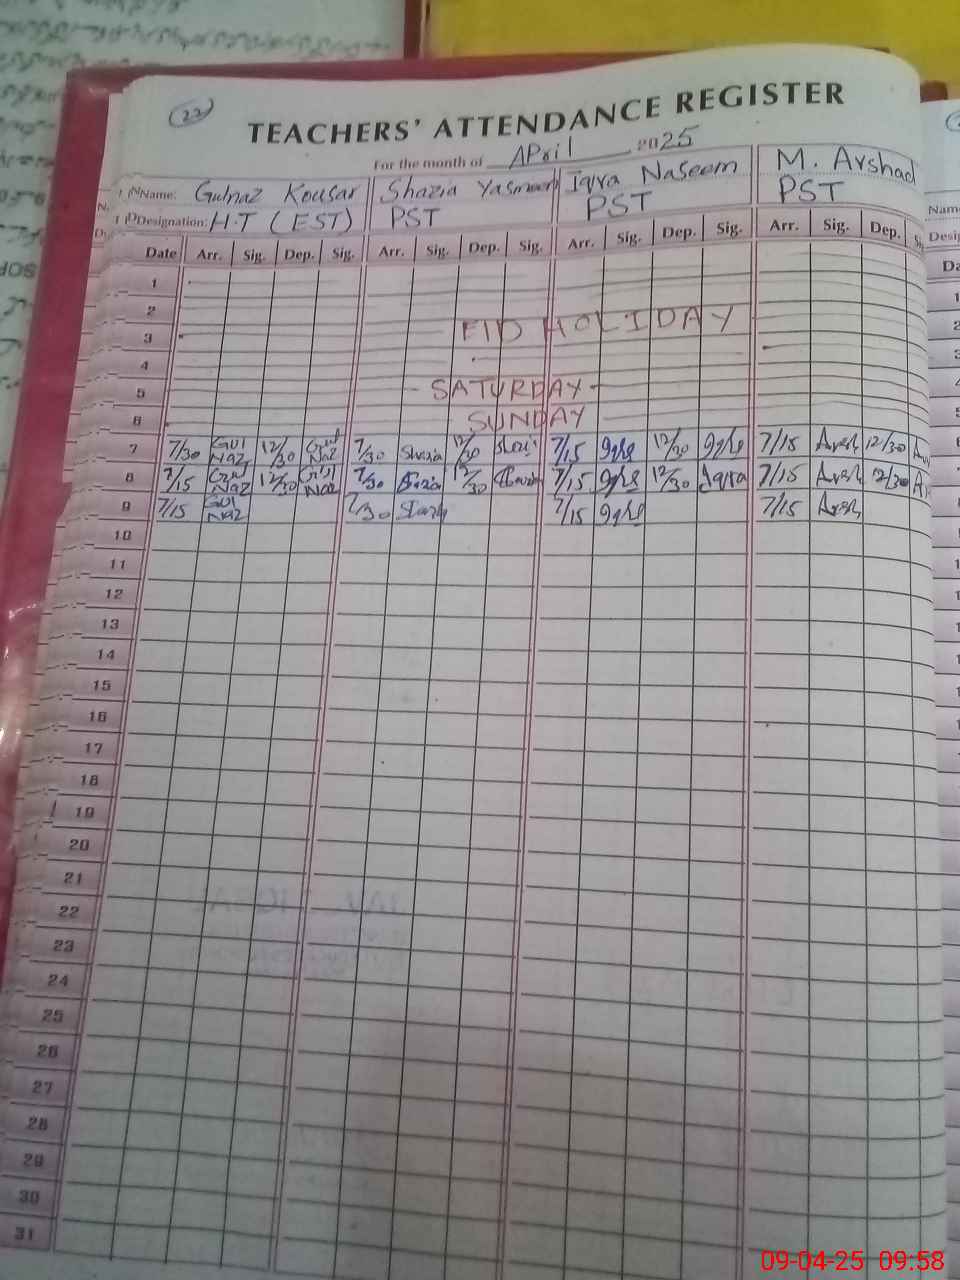 22
TEACHERS' ATTENDANCE REGISTER
For the month of April 2025
Name: Gulnaz Kousar Shazia Yasmeen Iqra Naseem M. Arshad
Designation: H.T (EST) PST PST PST
Date Arr. Sig. Dep. Sig. Arr. Sig. Dep. Sig. Arr. Sig. Dep. Sig. Arr. Sig. Dep.
1
2
3 EID HOLIDAY
4
5 SATURDAY
6 SUNDAY
7 7/30 Gul Naz 12/30 Gul Naz 7/30 Shazia 12/30 7/15 Iqra 12/30 Iqra 7/15 Arsh 12/30
8 7/15 Gul Naz 12/30 Gul Naz 7/30 12/30 7/15 Iqra 12/30 Iqra 7/15 Arsh 12/30
9 7/15 Gul Naz 7/30 7/15 Iqra 7/15 Arsh
10
11
12
13
14
15
16
17
18
19
20
21
22
23
24
25
26
27
28
29
30
31
09-04-25 09:58